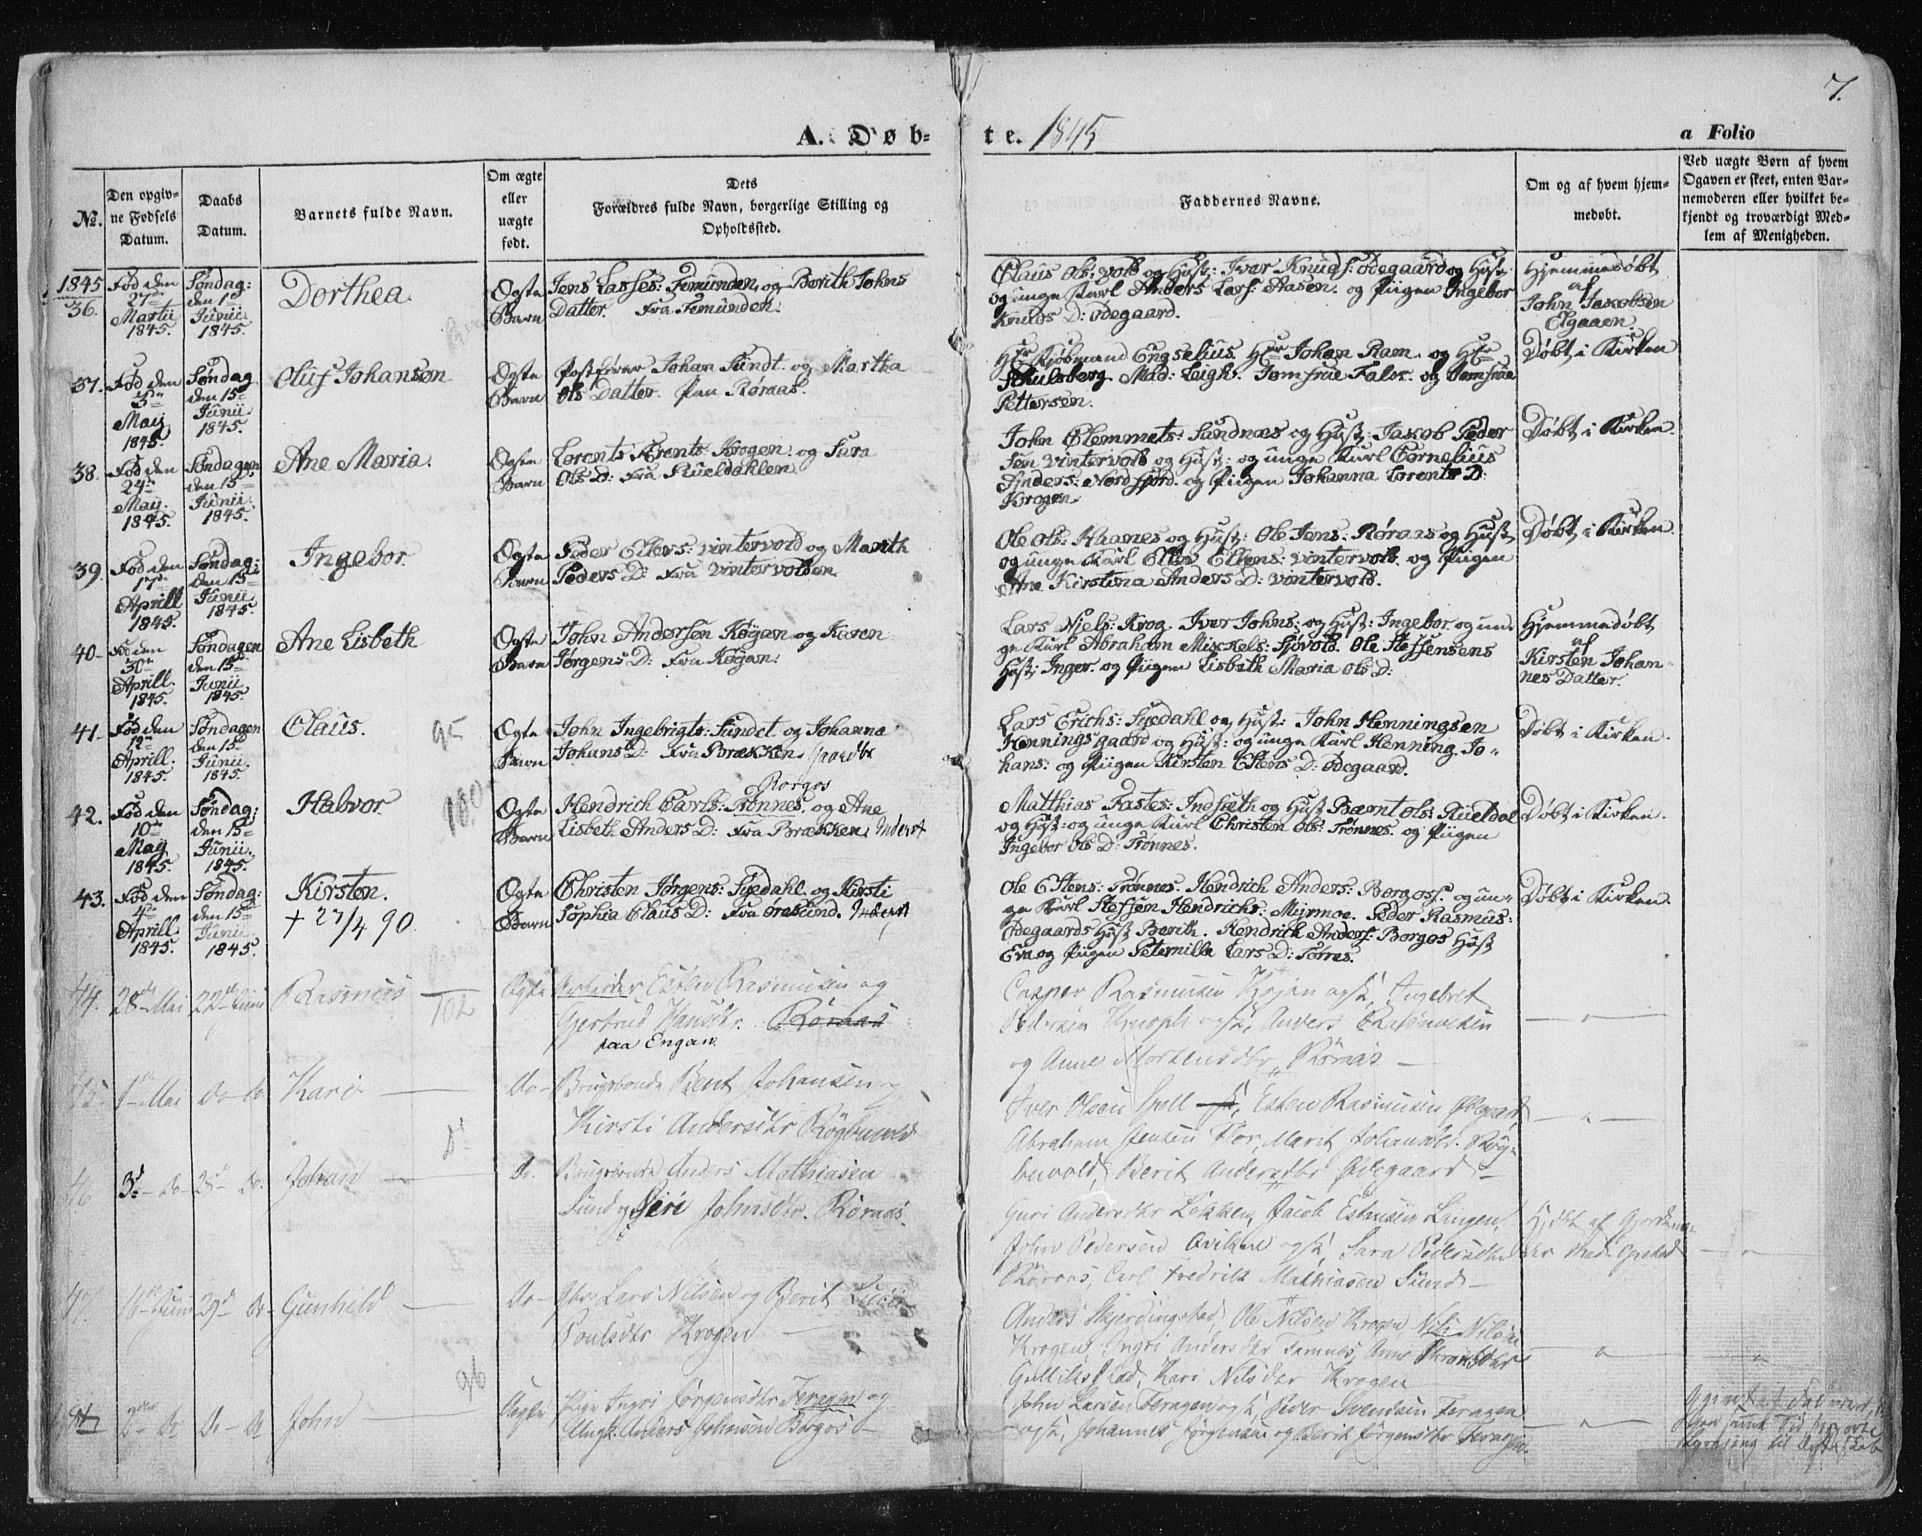 7.
A. Døb-
te. 1845
a Folio
№.
Den opgiv-
ne Fødsels
Datum.
Daabs
Datum.
Barnets fulde Navn.
Om ægte
eller
uægte
født.
Dets
Forældres fulde Navn, borgerlige Stilling og
Opholdssted.
Faddernes Navne.
Om og af hvem hjem-
medøbt.
Ved uægte Børn af hvem
Opgaven er skeet, enten Bar-
nemoderen eller hvilket be-
kjendt og troværdigt Med-
lem af Menigheden.
1845
36.
Fød den
27de
Martii
1845.
Søndag:
den 1ste
Junii
1845.
Dorthea
Ægte
Barn
Jens Lasses: Femunden og Borith Johns
Datter. Fra Femunden.
Claus Ols: vold og Hust: Iver Knuds: Ødegaard og Hust:
og unge Karl Anders Lars: Aasen. og Piigen Ingebor
Knuds D: Ødegaard.
Hjemmedøbt
af
John Jakobsen
Elgaaen.
37.
Fød den
5te
May
1845.
Søndag
den 15de
Junii
1845.
Oluf Johansen
Ægte
Barn
Postfører Johan Sundt. og Martha
Ols Datter. paa Røraas.
Hr Kjøbmand Engzelius. Hr Johan Ram. og Hr
Schulsberg Mad: Leigh. Jomfrue Falor. og Jomfrue
Pettersen.
Døbt i Kirken
38.
Fød den
24de
May
1845.
Søndagen
den 15de
Junii
1845.
Ane Maria.
Ægte
Barn
Lorents Lorents Krogen. og Sara
Ols D: Fra Rueldahlen
John Clemmets: Sundnæs og Hust: Jakob Peder
sen Vintervold og Hust: og unge Karl Cornelius
Anders: Nordfjord. og Piigen Johanna Lorents D:
Krogen.
Døbt i Kirken.
39.
Fød den
17de
Aprill
1845.
Søndag;
den 15de
Junii
1845.
Ingebor
Ægte
Barn
Peder Ellevs: Vintervold og Marith
Peders D: Fra Vintervolden
Ole Ols: Aanes og Hust: Ole Jens: Røraas og Hust:
og unge Karl Ellev Ellens: Vintervold. og Piigen
Ane Kirstina Anders D: Vintervold.
Døbt i Kirken
40
Fød den
30te
Aprill
1845.
Søndagen
den 15de
Junii
1845.
Ane Lisbeth
Ægte
Barn
John Andersen Køjan og Karen
Jørgens D: Fra Køjan.
Lars Niels: Krog. Iver Johns: og Hust: Ingebor og un-
ge Karl Abraham Mikkels: Sjøvold. Ole Steffensens
Hust: Inger. og Piigen Lisbeth Maria Ols D:
Hjemmedøbt
af
Kirsten Johan-
nes Datter.
41
Fød den
12te
Aprill.
1845
Søndagen
den 15de
Junii
1845
Claus.
95
Ægte
Barn
John Ingebrigts: Sundet og Johanna
Johans D: Fra Brækken. Gaardbr
Lars Erichs: Syedahl og Hust: John Henningsen
Henningsgaard og Hust: og unge Karl Henning Jo-
hans: og Piigen Kirsten Estens D: Ødegaard.
Døbt i Kirken.
42.
Fød den
10de
May
1845
Søndag;
den 15de
Junii.
1845.
Halvor
180
Ægte
Barn
Borgos
Hendrich Carls: Tønnes. og Ane
Lisbeth Anders D: Fra Brækken. Inderst
Matthias Fastes: Indseth og Hust Bærnt Ols: Rueldal
og Hust: og unge Karl Christen Ols: Trønnes. og Piigen
Ingebor Ols D: Trønnes.
Døbt i Kirken.
43.
Fød den
4de
Aprill
1845.
Søndag:
den 15de
Junii
1845.
Kirsten.
+ 27/4 90.
Ægte
Barn
Christen Jørgens: Syedahl. og Kirsti
Sophia Claus D: Fra Øresund. Inderst
Ole Estens: Trønnes. Hendrich Anders: Borgos. og un-
ge Karl Steffen Hendrichs: Myrmoe. Peder Rasmus:
Ødegaards Hust Berith. Hendrich Anders: Borgos Hust
Eva og Piigen Peternille Lars D: Tørres.
Døbt i Kirken.
44.
28de Mai
22de Juni
Rasmus
102
Ægte
Arbeider Esten Rasmusen og
Gertrud Hansdtr. Røraas
paa Engan.
Casper Rasmusen Køjan ogsk, Ingebret
Pedersen Knoph ogsk, Anders
og Anne Mortensdtr Røraas —
45.
1ste Mai
do do.
Kari
do
Brugsbonde Bent Johansen og
Kirsti Andersdtr Røgbuvold
Iver Olsen Spell, Esten Rasmusen Ødegaard,
Abraham Jensen Flor, Marit Johansdtr. Røg-
buvold, Berit Andersdtr Ødegaard —
46
3d do
25d do.
Johan
do.
Brugsbonde Anders Mathiasen
Sund og Siri Johnsdtr. Røraas.
Guri Andersdtr Løkken, Jacob Estensen Lungen,
John Pedersen Qvikne ogsk, Sara Pedersdtr
Røraas, Carl Fredrik Mathiasen Sund —
Hjdbt af Gjordemo-
der Mad. Opstad
47.
16de Juni
29d do
Gunhild
do
Gbr. Lars Nilsen og Berit
Poulsdtr Krogen
Anders Skjerdingstad, Ole Nilsen Krogen Nils Nilsen
Krogen, Ingri Andersdtr Tamnes, Anne
Gullikstad, Kari Nilsdtr Krogen
96
do do
do do
John
Uægte
Pige Ingri Jørgensdtr Feragen og
Ungk: Anders Johnsen Borgos —
John Larsen Feragen ogsk, Peder Svendsen Feragen
ogsk, Johannes Jørgensen og Berit Jørgensdtr Feragen.